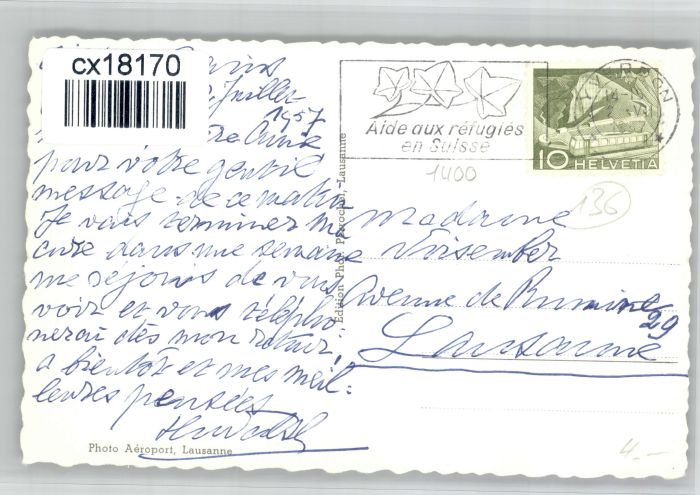 cx18170
Juillet
1957
pour votre gentil
message de ce matin
Je vais terminer ma
cure dans une semaine
me réjouis de vous
voir et vous télépho
nerai dès mon retour,
a bientôt et mes meil=
leures pensées
Photo Aéroport, Lausanne
Edition Photo Perrochet, Lausanne
Aide aux réfugiés
en Suisse
10 HELVETIA
1400
136
Madame
Avenue de Rumine
29
Lausanne
4.-